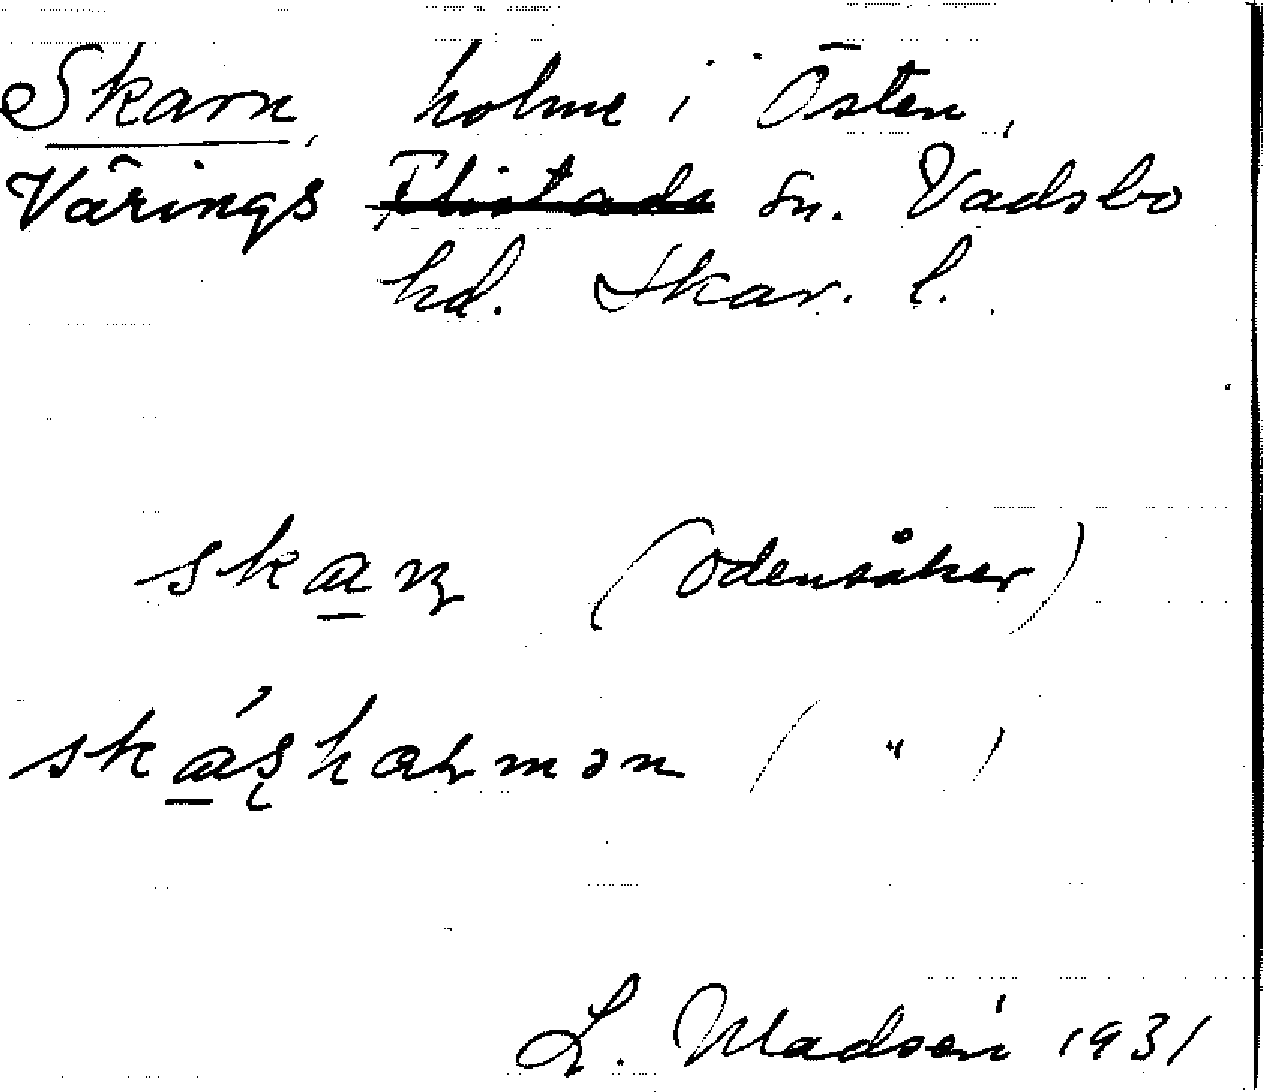 Skarn, holme i Östen,
Värings ~~Flistads~~ sn. Vadsbo
hd. Skar. l.
skaɳ (Odensåker)
ská̱ʂhaɫmən ( " )
L. Madsén 1931